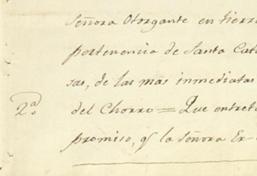 Señora Otorgante en tierra
pertenencia de Santa Cat
sas, de las más inmediatas
2ª
del Chorro = Que entret
promiso, q̃ la señora Ex-